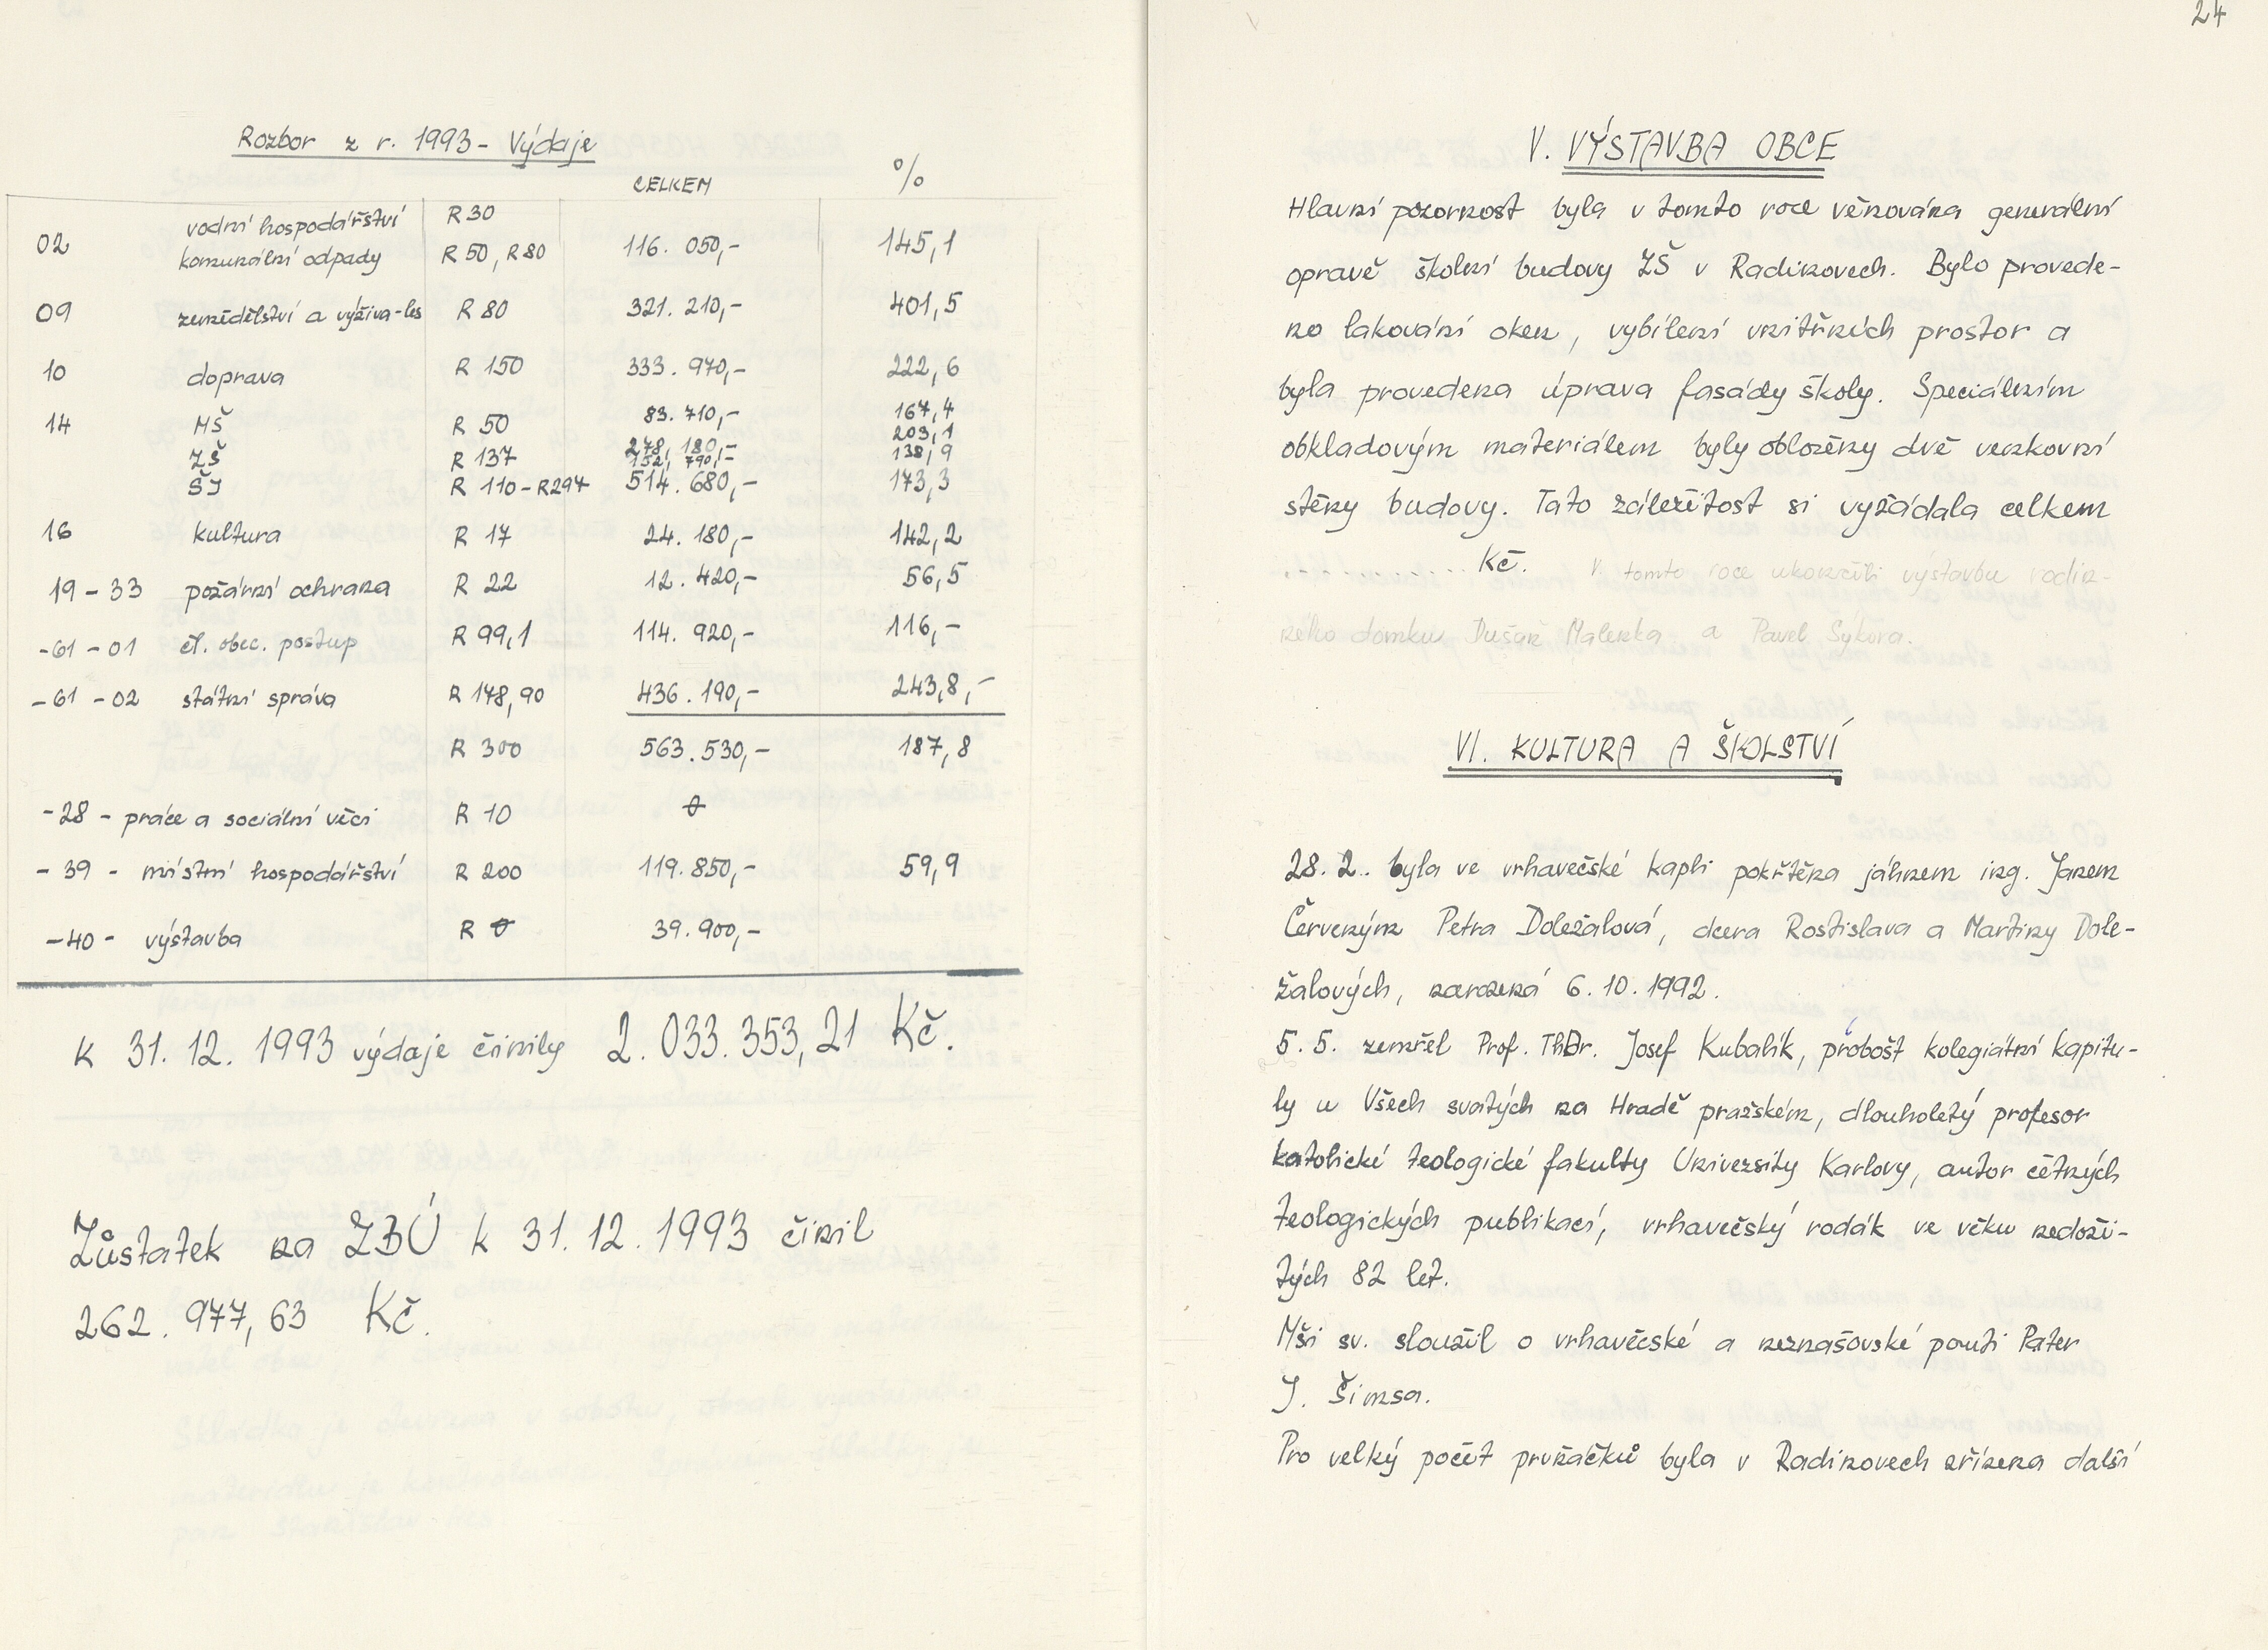 Rozbor z r. 1993 - Výdaje
CELKEM %
02 vodní hospodářství R 30
komunální odpady R 50, R 80 116. 050,- 145,1
09 zemědělství a výživa-les R 80 321. 210,- 401,5
10 doprava R 150 333. 970,- 222,6
14 MŠ R 50 83. 710,- 167,4
ZŠ R 137 278, 180,- 203,1
152, 790,- 138,9
ŠJ R 110-R297 514. 680,- 173,3
16 kultura R 17 24. 180,- 142,2
19-33 požární ochrana R 22 12. 420,- 56,5
-61-01 čl. obec. postup R 99,1 114. 920,- 116,-
-61-02 státní správa R 178,90 436. 190,- 243,8,-
R 300 563.530,- 187,8
-28- práce a sociální věci R 10 0
-39- místní hospodářství R 200 119.850,- 59,9
-40- výstavba R 0 39.900,-
K 31. 12. 1993 výdaje činily 2. 033. 353, 21 Kč.
Zůstatek na ZBÚ k 31. 12. 1993 činil
262. 977, 63 Kč.
24
V. VÝSTAVBA OBCE
Hlavní pozornost byla v tomto roce věnována generální
opravě školní budovy ZŠ v Radinovech. Bylo provede-
no lakování oken, vybílení vnitřních prostor a
byla provedena úprava fasády školy. Speciálním
obkladovým materiálem byly obloženy dvě venkovní
stěny budovy. Tato záležitost si vyžádala celkem
............. Kč. V tomto roce ukončili výstavbu rodin-
ného domku Dušan Malenka a Pavel Sýkora.
VI. KULTURA A ŠKOLSTVÍ
28. 2. byla ve vrhavečské kapli pokřtěna jáhnem ing. Janem
Červeným Petra Doležalová, dcera Rostislava a Martiny Dole-
žalových, narozená 6. 10. 1992.
5. 5. zemřel Prof. ThDr. Josef Kubalík, probošt kolegiátní kapitu-
ly u Všech svatých na Hradě pražském, dlouholetý profesor
katolické teologické fakulty University Karlovy, autor četných
teologických publikací, vrhavečský rodák ve věku nedoži-
tých 82 let.
Mši sv. sloužil o vrhavečské a neznašovské pouti Pater
J. Šimsa.
Pro velký počet prvňáčků byla v Radinovech zřízena další